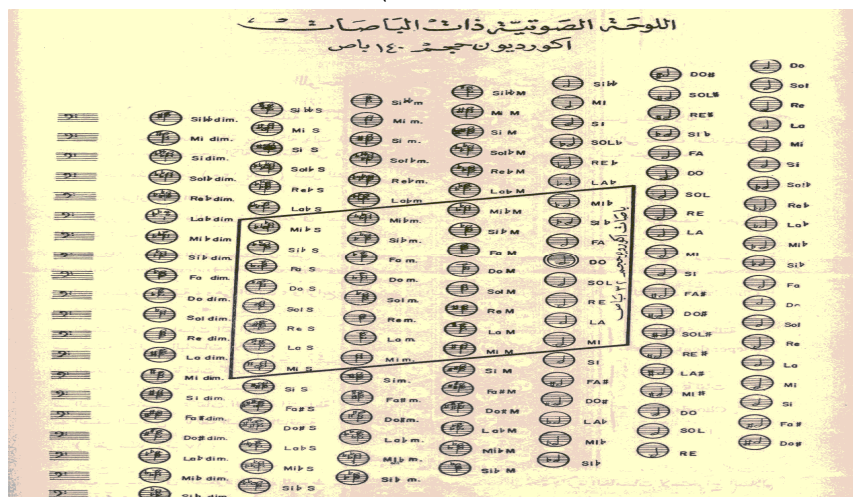 اللوحة الصوتية ذات الباصات
اكورديون حجم ١٤٠ باص
Si♭♭ dim.
Mi dim.
Si dim.
Sol♭ dim.
Re♭ dim.
La♭ dim
Mi♭ dim
Si♭ dim.
Fa dim.
Do dim.
Sol dim.
Re dim.
La dim.
Mi dim.
Si dim.
Fa# dim.
Do# dim.
La♭ dim.
Mi♭ dim.
Si♭ dim.
Si♭♭ S
Mi S
Si S
Sol♭ S
Re♭ S
La♭ S
Mi♭ S
Si♭ S
Fa S
Do S
Sol S
Re S
La S
Mi S
Si S
Fa# S
Do# S
La♭ S
Mi♭ S
Si♭ S
Si♭♭ m
Mi m.
Si m.
Sol♭ m.
Re♭ m.
La♭ m
Mi♭ m.
Si♭ m.
Fa m.
Do m.
Sol m.
Re m.
La m.
Mi m.
Si m.
Fa# m.
Do# m.
La♭ m.
Mi♭ m.
Si♭ m.
Si♭♭ M
Mi M
Si M
Sol♭ M
Re♭ M
La♭ M
Mi♭ M
Si♭ M
Fa M
Do M
Sol M
Re M
La M
Mi M
Si M
Fa# M
Do# M
La♭ M
Mi♭ M
Si♭ M
Si♭♭
MI
SI
SOL♭
RE♭
LA♭
MI♭
SI♭
FA
DO
SOL
RE
LA
MI
SI
FA#
DO#
LA♭
MI♭
SI♭
باصات اكورديون حجم ٣٢ باص
DO#
SOL#
RE#
SI♭
FA
DO
SOL
RE
LA
MI
SI
FA#
DO#
SOL#
RE#
LA#
MI#
DO
SOL
RE
Do
Sol
Re
La
Mi
Si
Sol♭
Re♭
La♭
Mi♭
Si♭
Fa
Do
Sol
Re
La
Mi
Si
Fa#
Do#